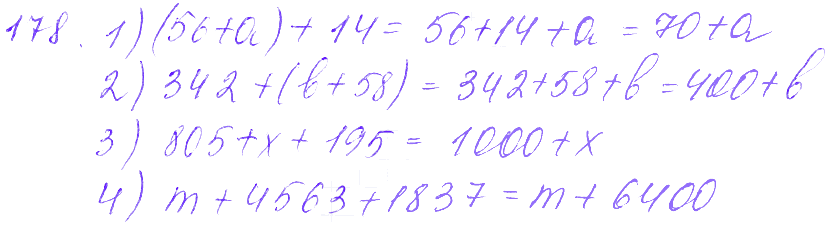 178. 1) (56+a) + 14 = 56+14+a = 70+a
2) 342 + (b+58) = 342+58+b = 400+b
3) 805+x+195 = 1000+x
4) m+4563+1837 = m+6400